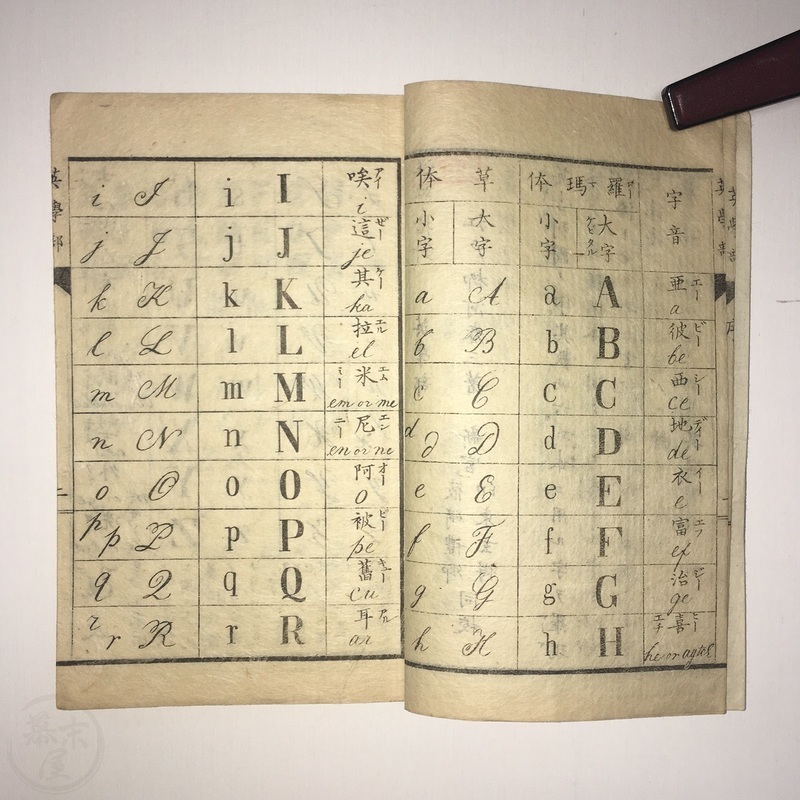 字音
羅瑪体
草体
大字 小字
大字 小字
亜 エー a A a A a
彼 ビー be B b B b
西 シー ce C c C c
地 デー de D d D d d
衣 イー e E e E e
富 エフ ef F f F f
治 ジー ge G g G g
喜 ヒー エチ he or agtch H h H h
英學
唉 アイ i I i I i
這 ゼー je J j J j
其 ケー ka K k K k
拉 エル el L l L l
米 エム ミー em or me M m M m
尼 エン ニー en or ne N n N n
阿 オー o O o O o
被 ピー pe P p P p p
舊 キュー cu Q q Q q
耳 アル ar R r R r r
幕末屋